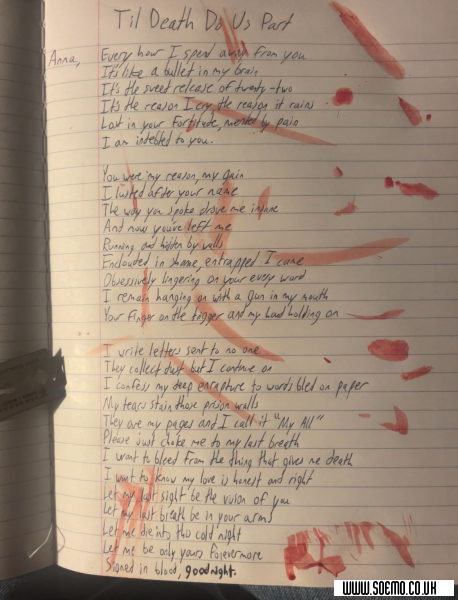 Til Death Do Us Part
Anna, Every hour I spend away from you
It's like a bullet in my brain
It's the sweet release of twenty-two
It's the reason I cry the reason it rains
Lost in your Fortitude, mented by pain
I am indebted to you.
You were my reason, my gain
I lusted after your name
The way you spoke drove me insane
And now you've left me
Running and hidden by walls
Enclouded in shame, entrapped I came
Obsessively lingering on your every word
I remain hanging on with a gun in my mouth
Your Finger on the trigger and my hand holding on
I write letters sent to no one
They collect dust but I continue on
I confess my deep enrapture to words bled on paper
My tears stain those prison walls
They are my pages and I call it "My All"
Please just choke me to my last breath
I want to bleed from the thing that gives me death
I want to know my love is honest and right
Let my last sight be the vision of you
Let my last breath be in your arms
Let me die into this cold night
Let me be only yours forevermore
Signed in blood, goodnight.
WWW.SOEMO.CO.UK